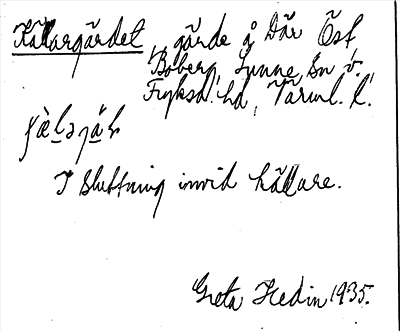 Källargärdet, gärde å Där Öst,
Boberg, Sunne sn v.
Fryksd. hd, Värml. l.
I sluttning invid källare.
Greta Hedin 1935.